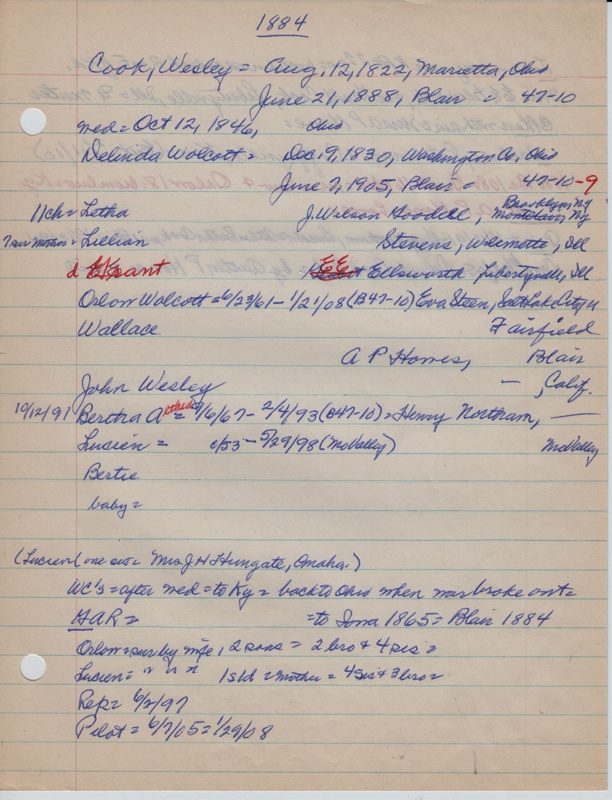 1884
Cook, Wesley = Aug. 12, 1822, Marietta, Ohio
June 21, 1888, Blair = 47-10
med = Oct 12, 1846, Ohio
Delinda Wolcott = Dec. 9, 1830, Washington Co, Ohio
June 7, 1905, Blair = 47-10-9
Brooklyn, NY
11ch = Letha J. Wilson Goodell, Montclair, NY
7 sur mother = Lillian Stevens, Wilemotte, Ill
d Grant E.E. Ellsworth Libertyville, Ill
Orlow Wolcott = 6/23/61 - 1/21/08 (B47-10) Eva Steen, Salt Lake City, U
Wallace Fairfield
A P Howes, Blair
John Wesley — , Calif.
10/12/91 Bertha A = /6/67 - 2/4/93 (B47-10) = Henry Northam, —
Lucien = c/53 - 5/29/98 (MoValley) MoValley
Bertie
baby =
(Lucien (one sis = Mrs J H Hungate, Omaha.)
WC's = after med = to Ky = back to Ohio when war broke out =
GAR = = to Iowa 1865 = Blair 1884
Orlow = sur by wife, 2 sons = 2 bro + 4 sis =
Lucien = " " " 1 s 1 d = mother = 4 sis + 3 bro =
Rep = 6/2/97
Pilot = 6/7/05 = 1/29/08